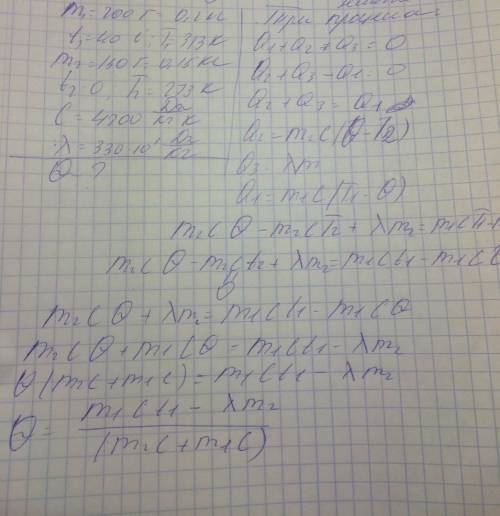 m₁ = 200 г = 0.2 кг
t₁ = 40 c T₁ 313 K
m₂ = 150 г = 0.15 кг
t₂ 0 T₂ = 273 K
C = 4200 Дж/кг K
λ = 330 · 10³ Дж/кг
θ - ?
При
Q₁ + Q₂ + Q₃ = 0
Q₂ + Q₃ - Q₁ = 0
Q₂ + Q₃ = Q₁
Q₂ = m₂C(θ - T₂)
Q₃ = λm
Q₁ = m₁C(T₁ - θ)
m₂Cθ - m₂CT₂ + λm₂ = m₁CT₁
m₂Cθ - m₂Ct₂ + λm₂ = m₁Ct₁ - m₁C
0
m₂Cθ + λm₂ = m₁Ct₁ - m₁Cθ
m₂Cθ + m₁Cθ = m₁Ct₁ - λm₂
θ(m₂C + m₁C) = m₁Ct₁ - λm₂
θ = m₁Ct₁ - λm₂ / (m₂C + m₁C)